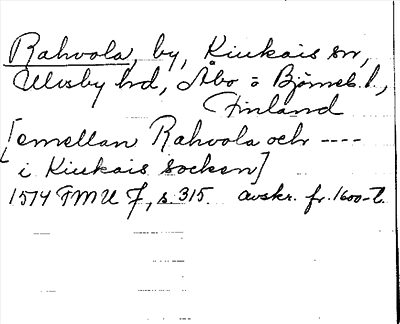 Rahvola, by, Kiukais sn,
Ulvsby hd, Åbo o Björneb. l.,
Finland
[emellan Rahvola och ----
i Kiukais socken]
1574 FMU F, s. 315. avskr. fr. 1600-t.